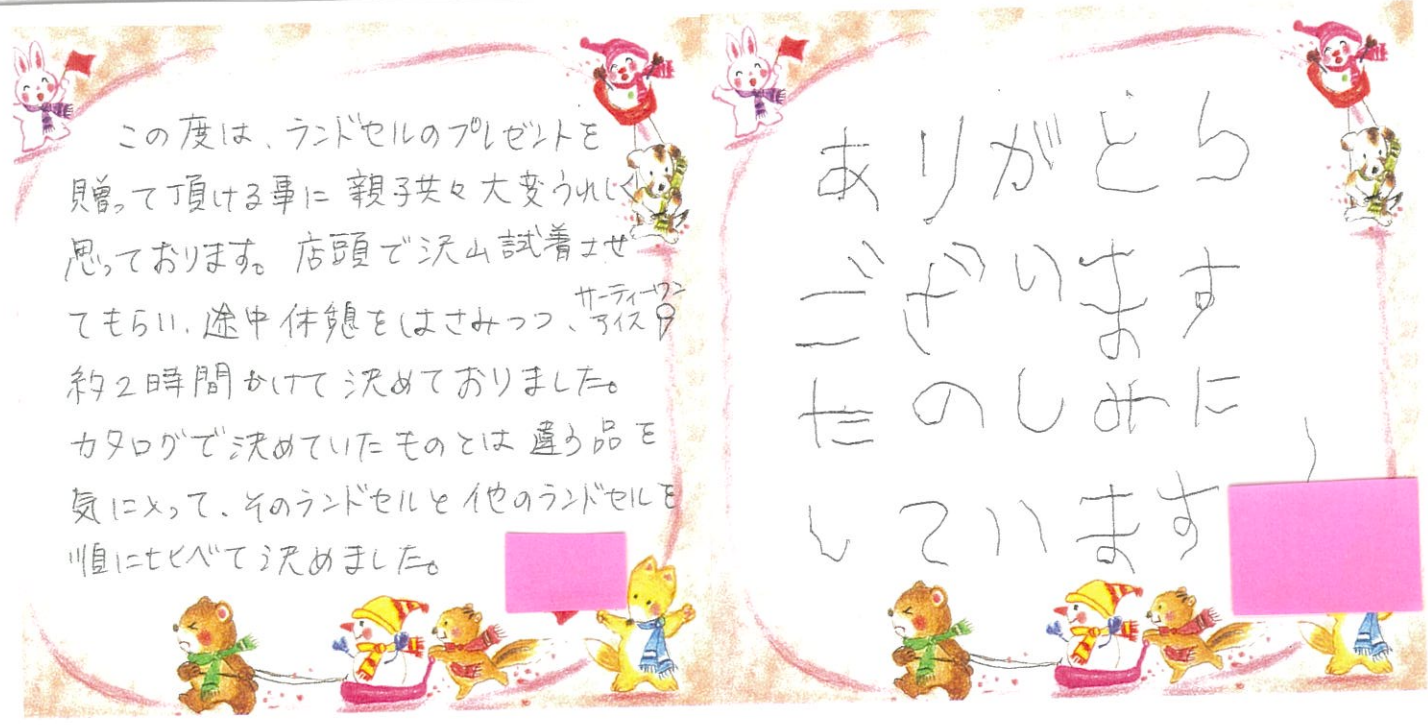 この度は、ランドセルのプレゼントを
贈って頂ける事に親子共々大変うれしく
思っております。店頭で沢山試着させ
てもらい、途中休憩をはさみつつ、サーティーワンアイス
約2時間かけて決めておりました。
カタログで決めていたものとは違う品を
気に入って、そのランドセルと他のランドセルを
順に比べて決めました。
ありがとう
ございます
たのしみに
しています